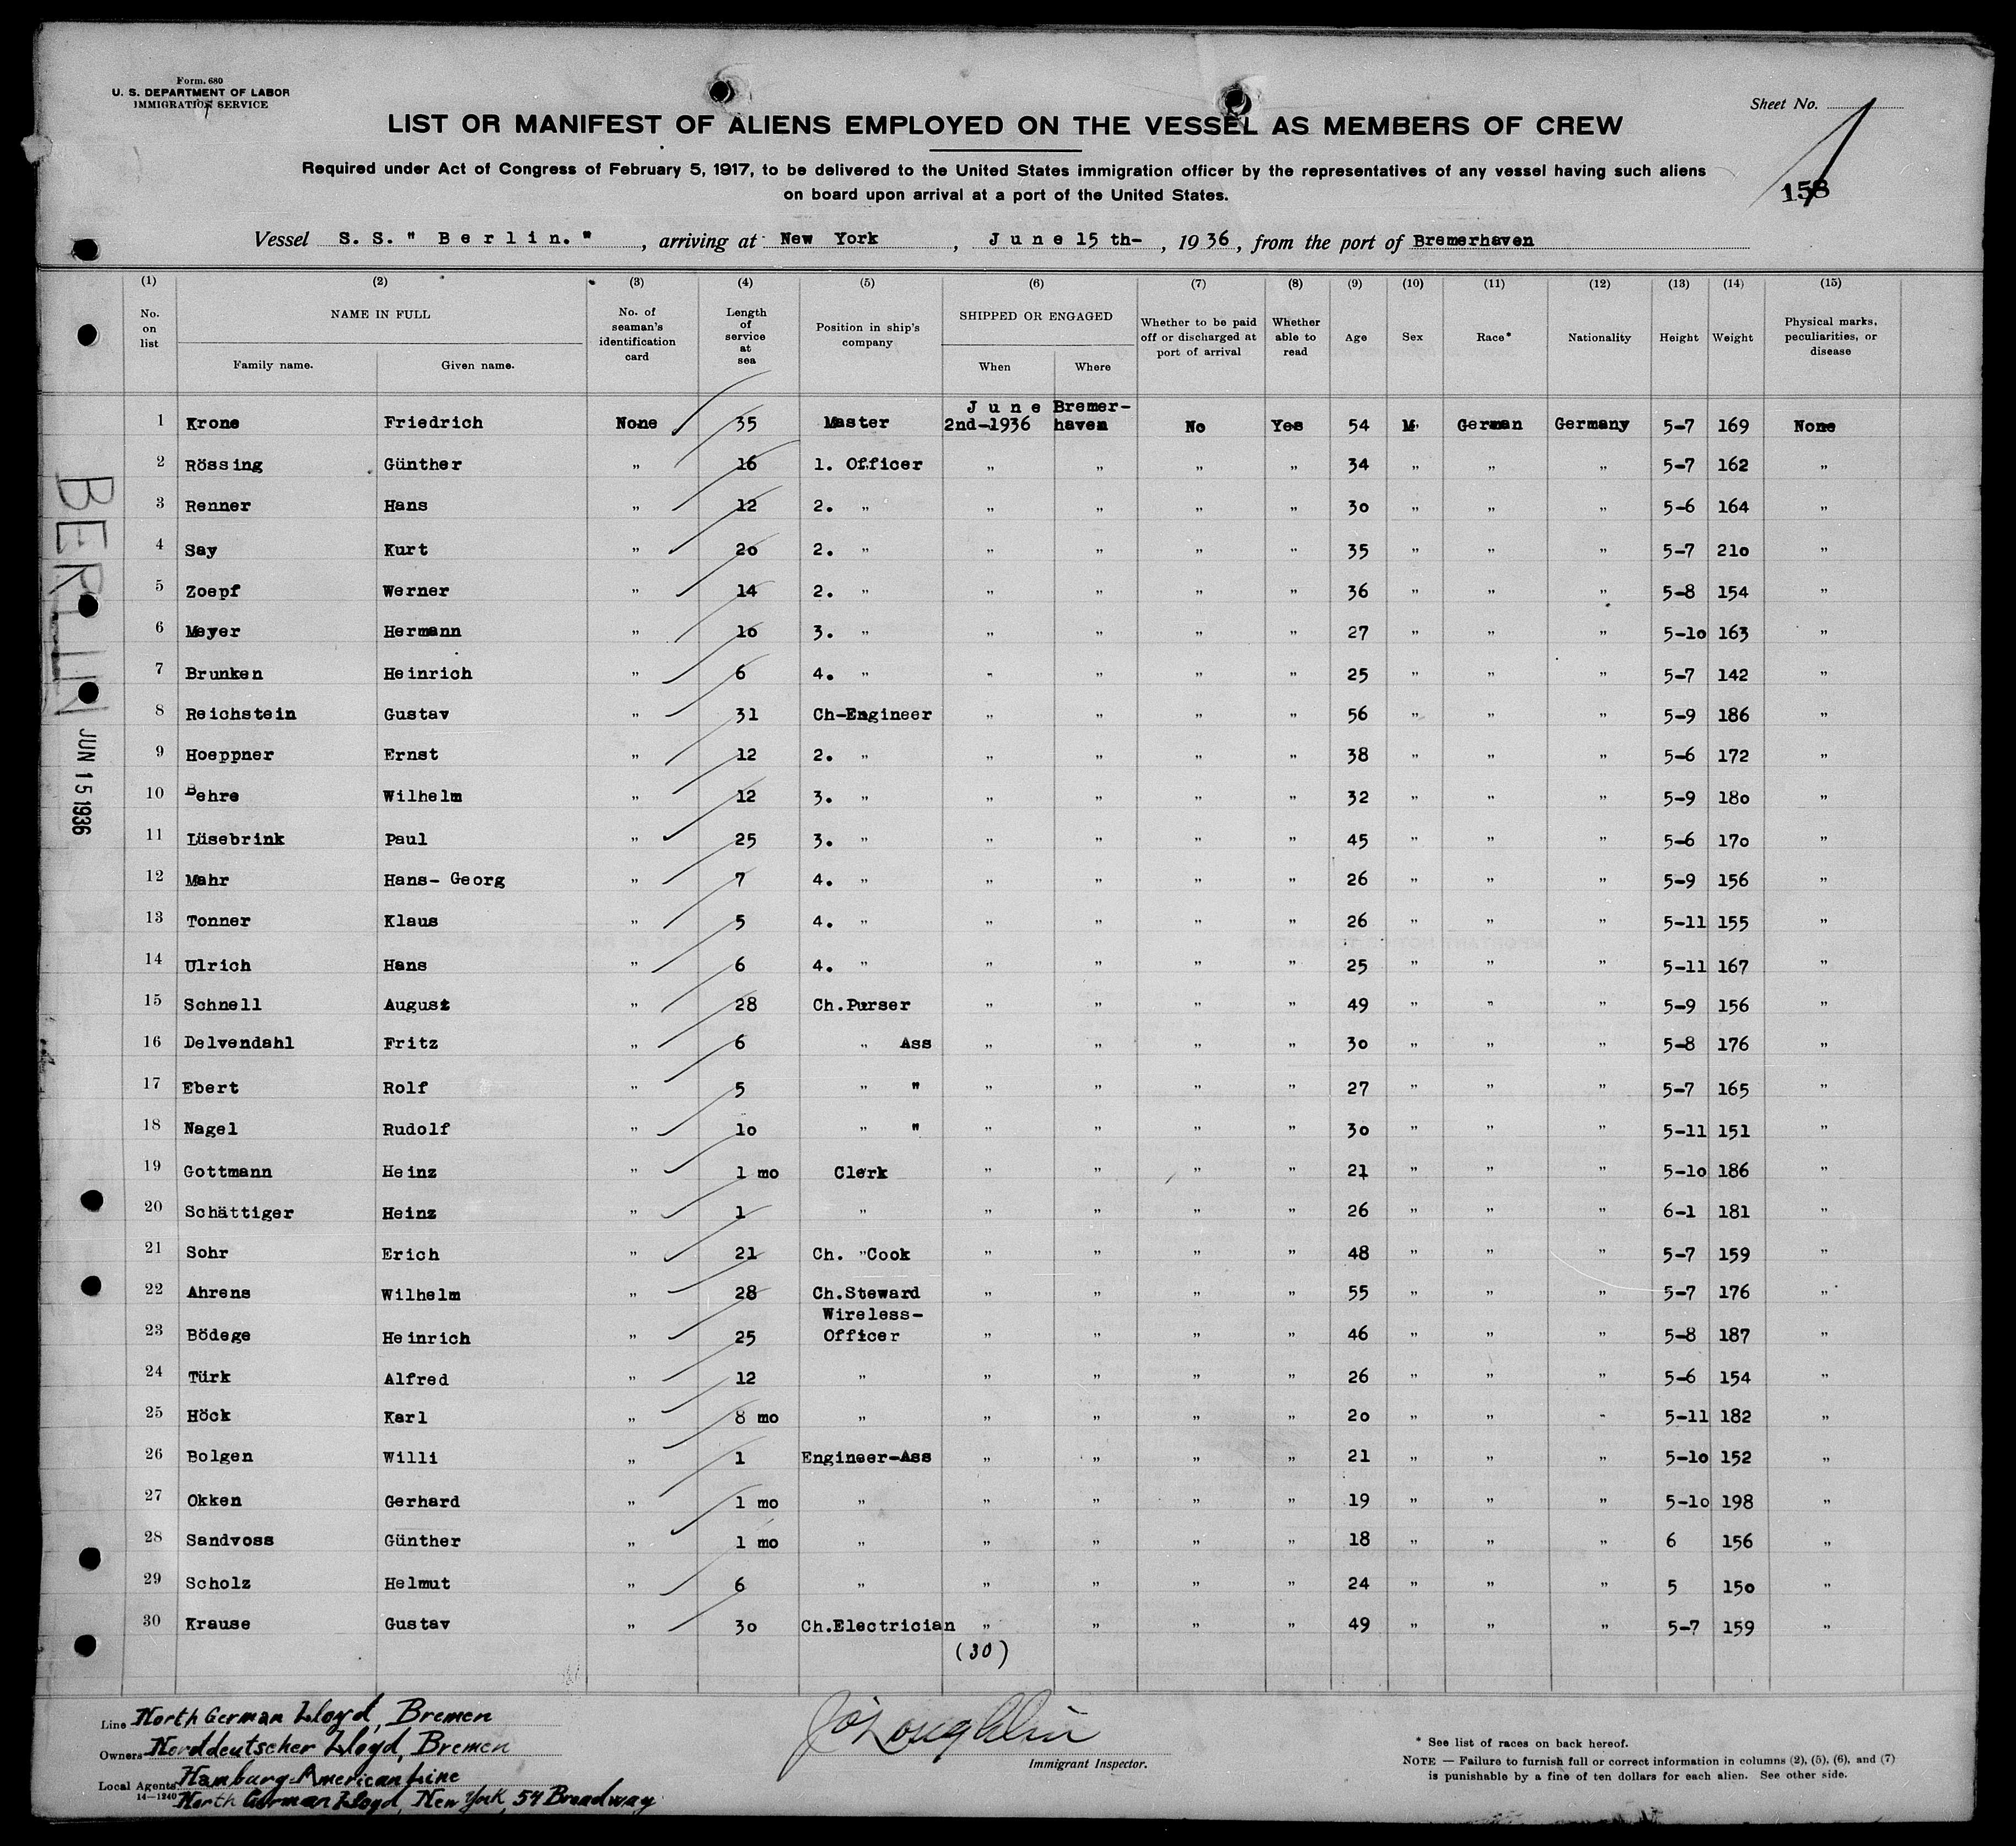 Form. 680
U. S. DEPARTMENT OF LABOR
IMMIGRATION SERVICE
Sheet No. 1
LIST OR MANIFEST OF ALIENS EMPLOYED ON THE VESSEL AS MEMBERS OF CREW
Required under Act of Congress of February 5, 1917, to be delivered to the United States immigration officer by the representatives of any vessel having such aliens
on board upon arrival at a port of the United States.
158
Vessel S. S. " Berlin. " , arriving at New York , June 15 th- , 1936, from the port of Bremerhaven
(1) (2) (3) (4) (5) (6) (7) (8) (9) (10) (11) (12) (13) (14) (15)
No. on list NAME IN FULL Family name. Given name. No. of seaman's identification card Length of service at sea Position in ship's company SHIPPED OR ENGAGED When Where Whether to be paid off or discharged at port of arrival Whether able to read Age Sex Race* Nationality Height Weight Physical marks, peculiarities, or disease
1 Krone Friedrich None 35 Master June 2nd-1936 Bremer-haven No Yes 54 M. German Germany 5-7 169 None
2 Rössing Günther " 16 1. Officer " " " " 34 " " " 5-7 162 "
3 Renner Hans " 12 2. " " " " " 30 " " " 5-6 164 "
4 Say Kurt " 20 2. " " " " " 35 " " " 5-7 210 "
5 Zoepf Werner " 14 2. " " " " " 36 " " " 5-8 154 "
6 Meyer Hermann " 10 3. " " " " " 27 " " " 5-10 163 "
7 Brunken Heinrich " 6 4. " " " " " 25 " " " 5-7 142 "
8 Reichstein Gustav " 31 Ch-Engineer " " " " 56 " " " 5-9 186 "
9 Hoeppner Ernst " 12 2. " " " " " 38 " " " 5-6 172 "
10 Behre Wilhelm " 12 3. " " " " " 32 " " " 5-9 180 "
11 Lüsebrink Paul " 25 3. " " " " " 45 " " " 5-6 170 "
12 Mahr Hans- Georg " 7 4. " " " " " 26 " " " 5-9 156 "
13 Tonner Klaus " 5 4. " " " " " 26 " " " 5-11 155 "
14 Ulrich Hans " 6 4. " " " " " 25 " " " 5-11 167 "
15 Schnell August " 28 Ch.Purser " " " " 49 " " " 5-9 156 "
16 Delvendahl Fritz " 6 " Ass " " " " 30 " " " 5-8 176 "
17 Ebert Rolf " 5 " " " " " " 27 " " " 5-7 165 "
18 Nagel Rudolf " 10 " " " " " " 30 " " " 5-11 151 "
19 Gottmann Heinz " 1 mo Clerk " " " " 21 " " " 5-10 186 "
20 Schättiger Heinz " 1 " " " " " 26 " " " 6-1 181 "
21 Sohr Erich " 21 Ch. "Cook " " " " 48 " " " 5-7 159 "
22 Ahrens Wilhelm " 28 Ch.Steward " " " " 55 " " " 5-7 176 "
23 Bödege Heinrich " 25 Wireless-Officer " " " " 46 " " " 5-8 187 "
24 Türk Alfred " 12 " " " " " 26 " " " 5-6 154 "
25 Höck Karl " 8 mo " " " " " 20 " " " 5-11 182 "
26 Bolgen Willi " 1 Engineer-Ass " " " " 21 " " " 5-10 152 "
27 Okken Gerhard " 1 mo " " " " " 19 " " " 5-10 198 "
28 Sandvoss Günther " 1 mo " " " " " 18 " " " 6 156 "
29 Scholz Helmut " 6 " " " " " 24 " " " 5 150 "
30 Krause Gustav " 30 Ch.Electrician " " " " 49 " " " 5-7 159 "
(30)
BERLIN
JUN 15 1936
Line North German Lloyd, Bremen
Owners Norddeutscher Lloyd, Bremen
Local Agents Hamburg-American Line
14-1240 North German Lloyd, New York, 54 Broadway
J O'Loughlin
Immigrant Inspector.
* See list of races on back hereof.
NOTE — Failure to furnish full or correct information in columns (2), (5), (6), and (7)
is punishable by a fine of ten dollars for each alien. See other side.